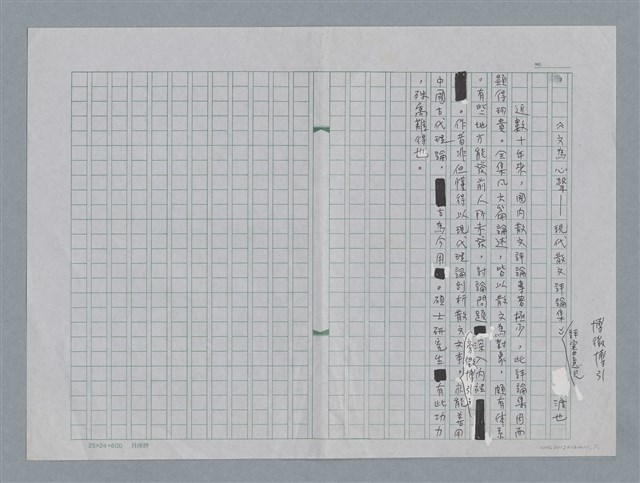 《文為心聲——現代散文評論集》
渡也
博徵博引
近數十年來，國內散文評論專書極少，此評論集因而
顯得珍貴。全集凡六篇論述，皆以散文為對象，頗有体系
。有些地方能發前人所未發，討論問題深入內裡
旁徵博引
。作者非但懂得以現代理論剖析散文文本，亦能善用
中國古代理論，古為今用。碩士研究生有此功力
，殊為難得也。
25×24=600